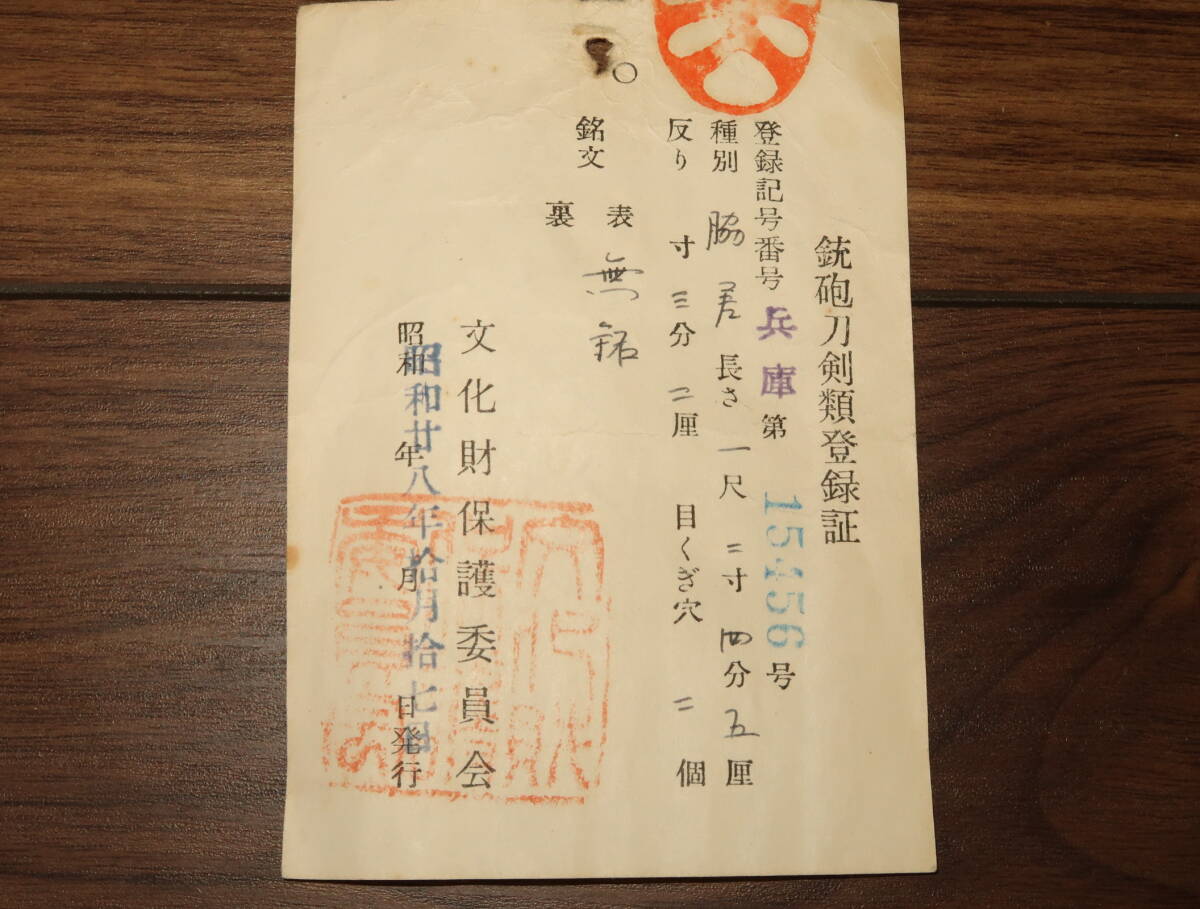 銃砲刀剣類登録証
登録記号番号 兵庫 第 15456 号
種別 脇差 長さ 一尺 二寸 四分 五厘
反り 寸 三分 二厘 目くぎ穴 二 個
銘文
表 無銘
裏
文化財保護委員会
昭和 年 月 日発行
昭和廿八年拾月拾七日